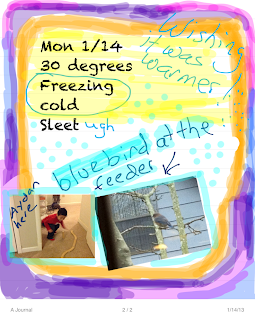 Wishing
it was
warmer!
Mon 1/14
30 degrees
Freezing
cold
Sleet ugh
bluebird at the
feeder
Aydan
here
A Journal
2 / 2
1/14/13